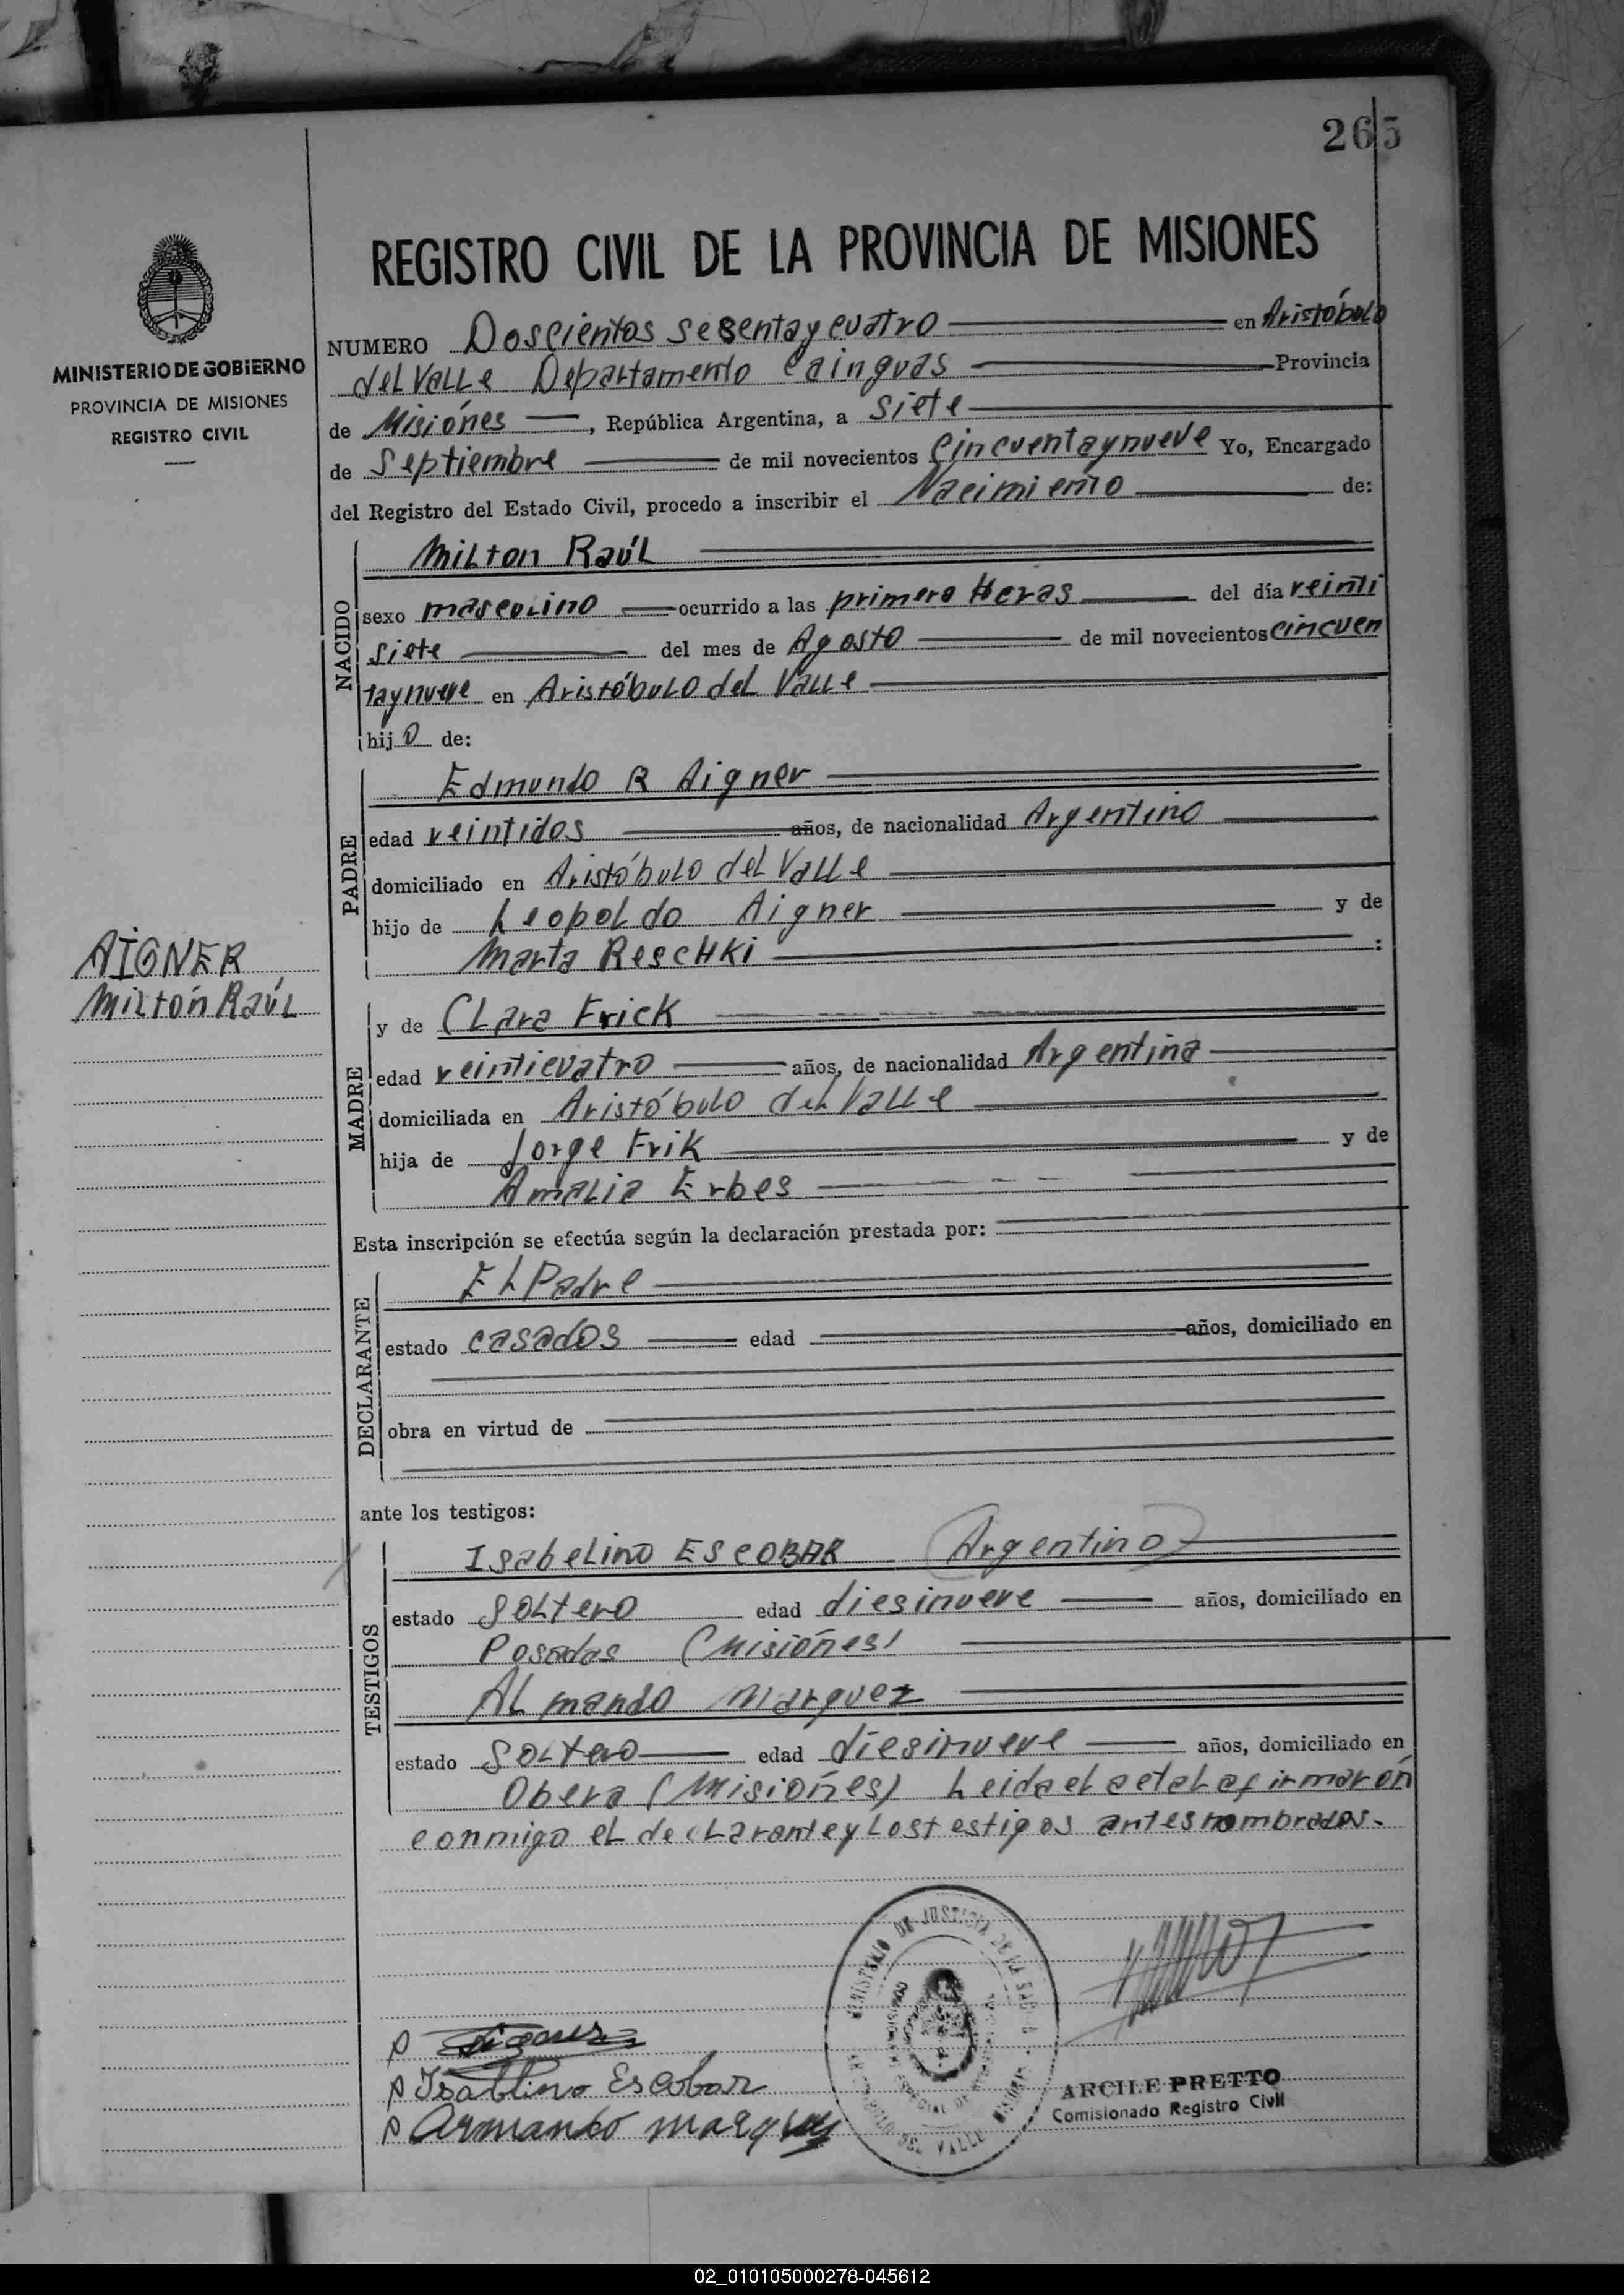 265
MINISTERIO DE GOBIERNO
PROVINCIA DE MISIONES
REGISTRO CIVIL
REGISTRO CIVIL DE LA PROVINCIA DE MISIONES
NUMERO Doscientos sesentaycuatro en Aristóbulo
del Valle Departamento Cainguas Provincia
de Misiónes, República Argentina, a Siete
de Septiembre de mil novecientos Cincuentaynueve Yo, Encargado
del Registro del Estado Civil, procedo a inscribir el Nacimiento de:
NACIDO
Milton Raúl
sexo masculino ocurrido a las primera Horas del día veinti
siete del mes de Agosto de mil novecientos cincuen
taynueve en Aristóbulo del Valle
hijo de:
PADRE
Edmundo R Aigner
edad veintidos años, de nacionalidad Argentino
domiciliado en Aristóbulo del Valle
hijo de Leopoldo Aigner y de
Marta Reschki :
AIGNER
Miltón Raúl
MADRE
y de Clara Frick
edad veinticuatro años, de nacionalidad Argentina
domiciliada en Aristóbulo del Valle
hija de Jorge Frik y de
Amalia Erbes
Esta inscripción se efectúa según la declaración prestada por:
DECLARANTE
El Padre
estado casados edad años, domiciliado en
obra en virtud de
ante los testigos:
TESTIGOS
Isabelino ESCOBAR (Argentino)
estado Soltero edad diesinueve años, domiciliado en
Posadas (Misiónes)
Almando Marquez
estado Soltero edad diesinueve años, domiciliado en
Obera (Misiones) Leida el acta La firmarón
conmigo el declarante y Los testigos antes nombrados.
MINISTERIO DE JUSTICIA
DEL VALLE
p Isablino Escobar
p Armando marquez
ARCILE PRETTO
Comisionado Registro Civil
02_010105000278-045612